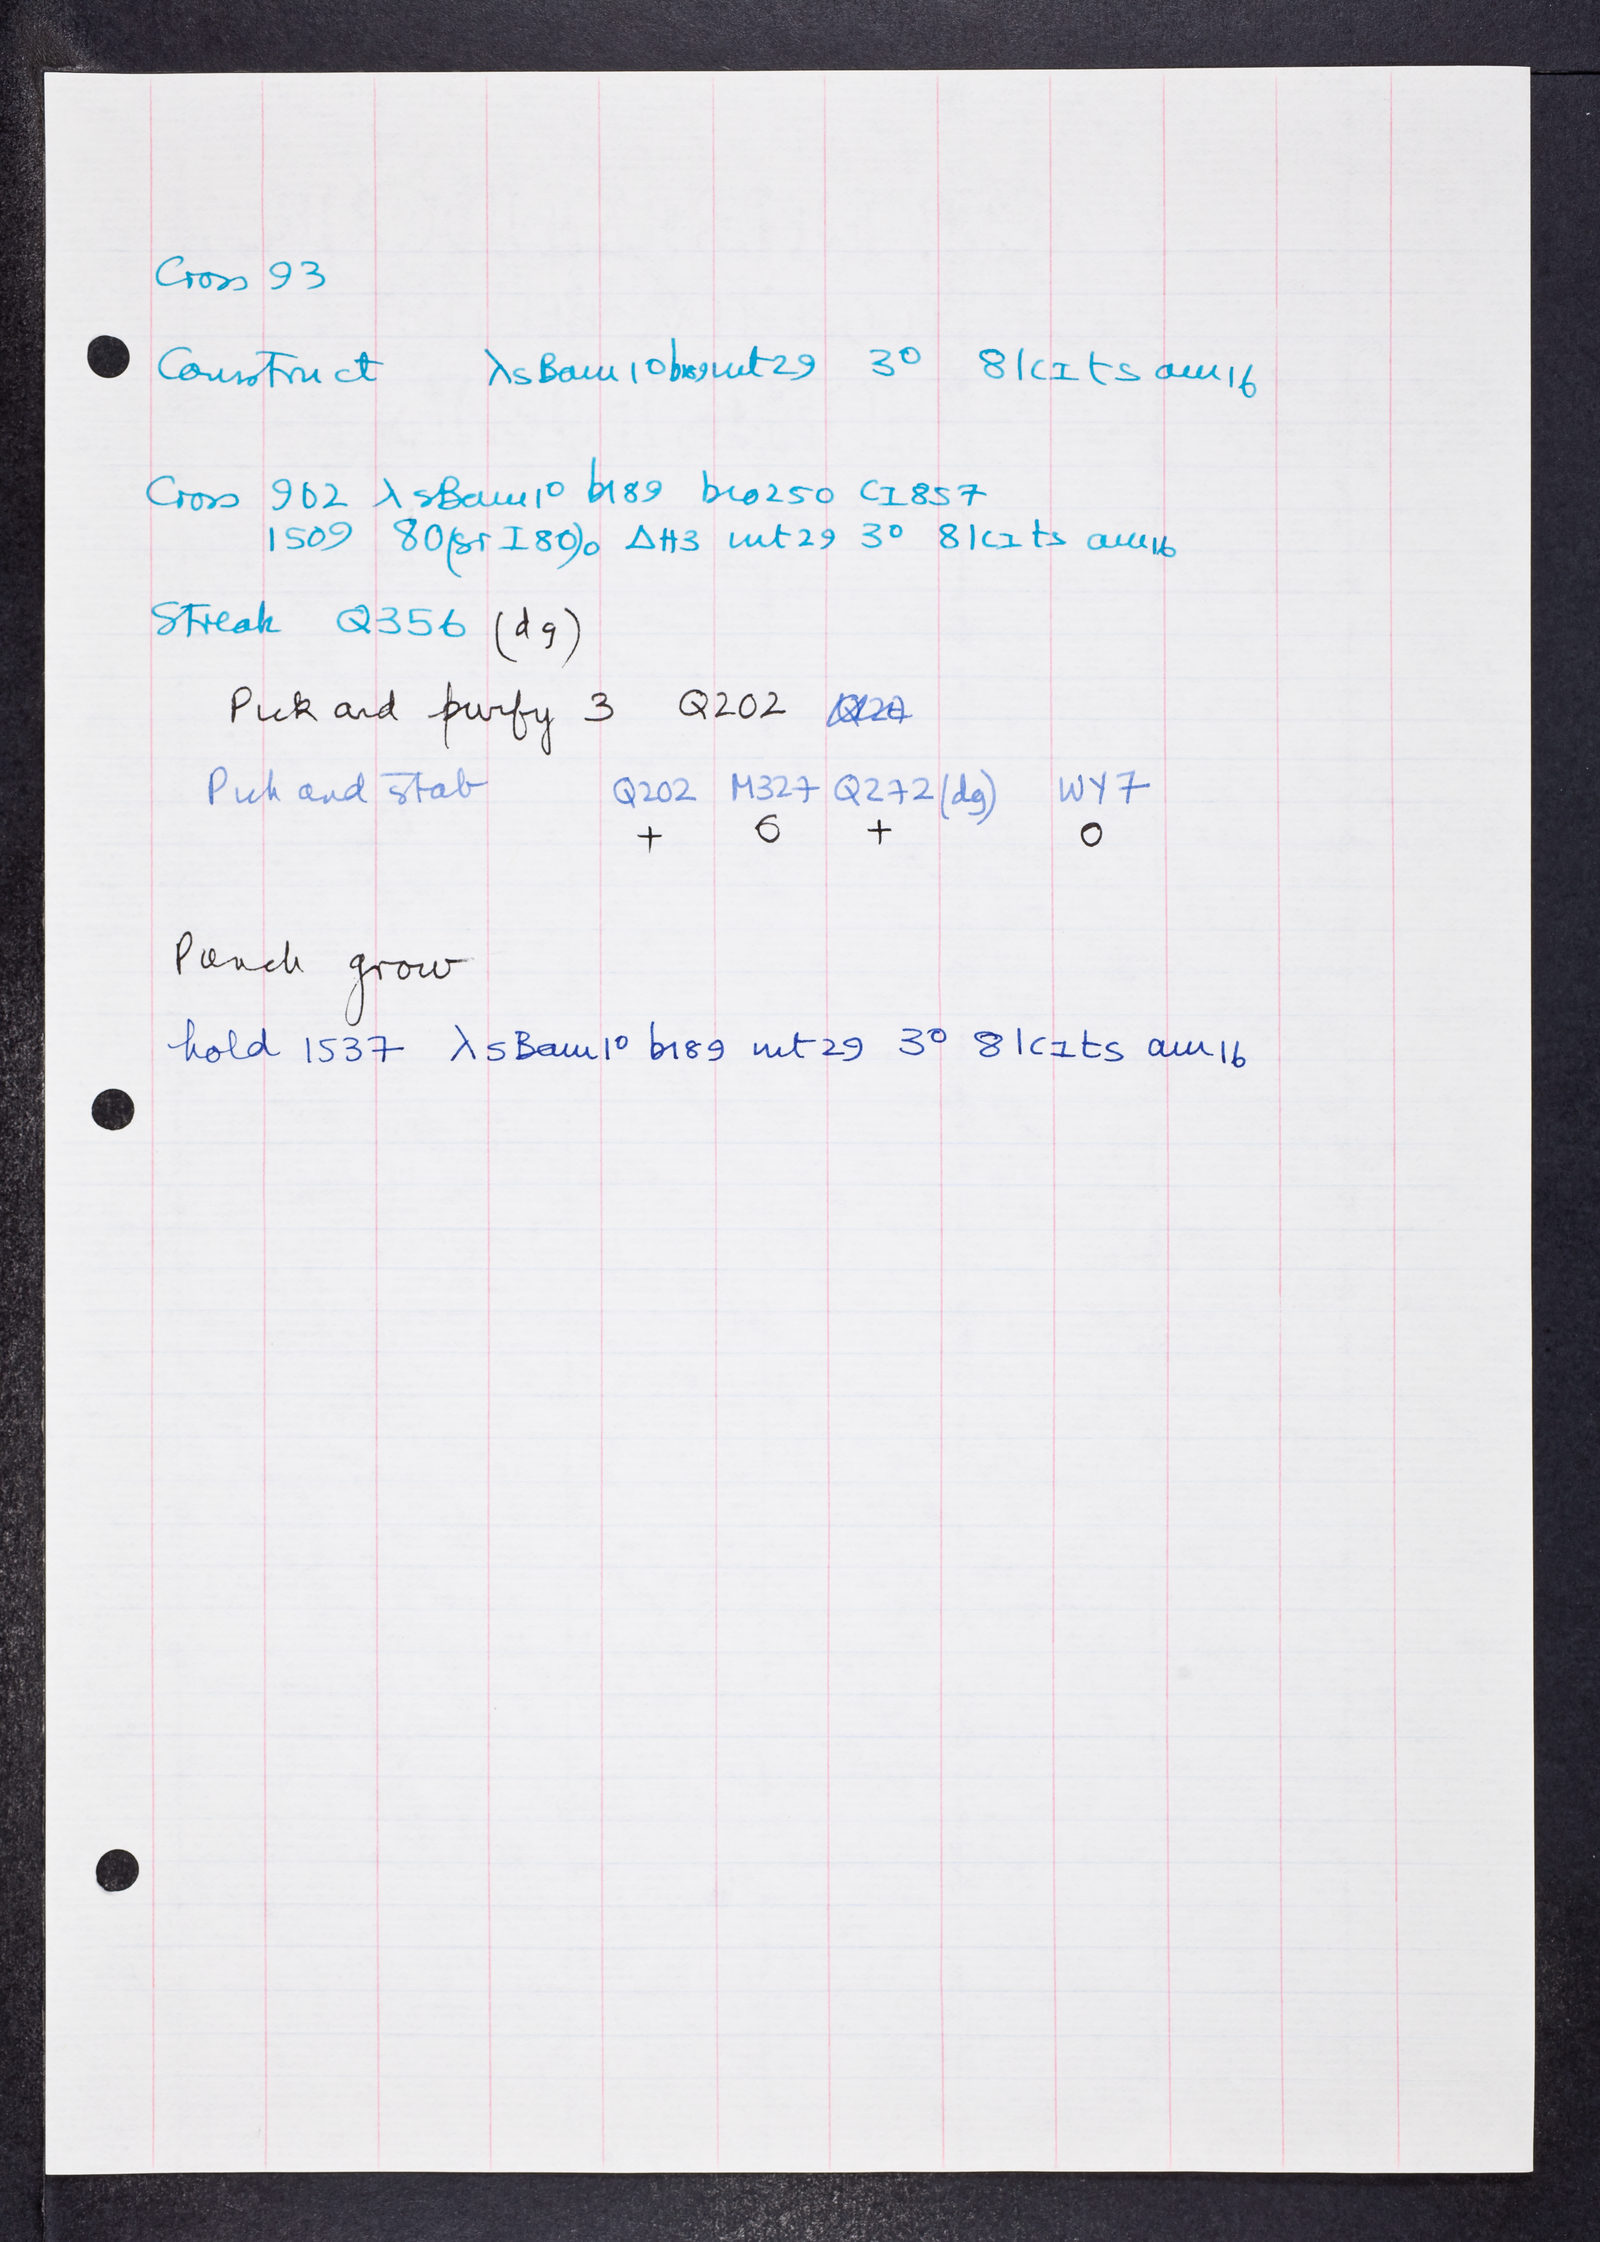 Cross 93
Construct λsBam1° b189 int29 3° 81cIts am16
Cross 902 λsBam1° b189 bio250 cI857
1509 80(srI80)° ΔH3 int29 3° 81cIts am16
Streak Q356 (dg)
Pick and purify 3 Q202
Pick and stab Q202 M327 Q272(dg) WY7
+ 0 + 0
Punch grow
hold 1537 λsBam1° b189 int29 3° 81cIts am16